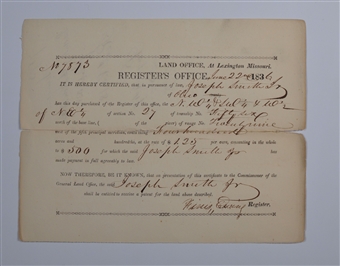 No 7873
LAND OFFICE, At Lexington Missouri,
REGISTER'S OFFICE, June 22 1836
IT IS HEREBY CERTIFIED, That, in pursuance of law, Joseph Smith Jr
of Ohio
has this day purchased of the Register of this office, the
of section No. 27 of township No. Fifty six
north of the base line, of range No.
west of the fifth principal meridian, containing
acres and hundredths, at the rate of $1 25 per acre, amounting in the whole
to $300 for which the said Joseph Smith Jr has
made payment in full agreeably to law.
NOW THEREFORE, BE IT KNOWN, that on presentation of this certificate to the Commissioner of the
General Land Office, the said Joseph Smith Jr
shall be entitled to receive a patent for the land above described.
Register.